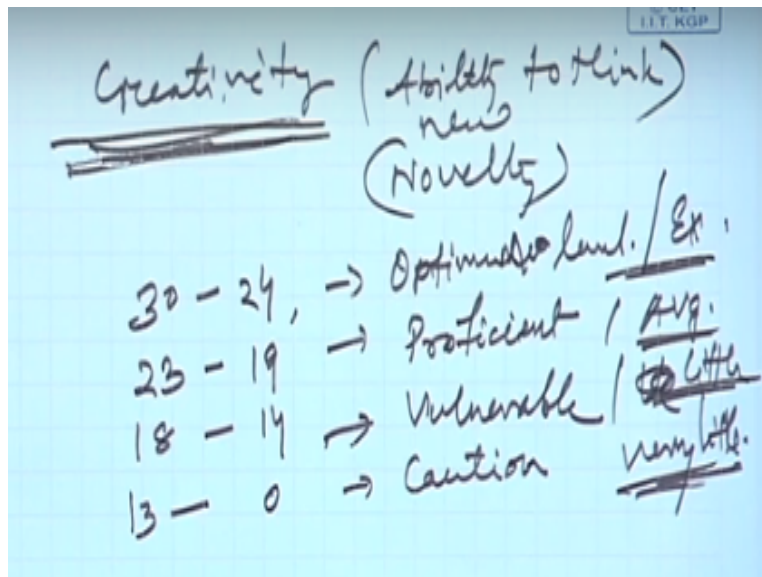 © CET
I.I.T. KGP
Creativity (Ability to think)
new
(Novelty)
30 - 24, → Optimum level. / Ex.
23 - 19 → Proficient / Avg.
18 - 14 → Vulnerable / little
13 - 0 → Caution very little.